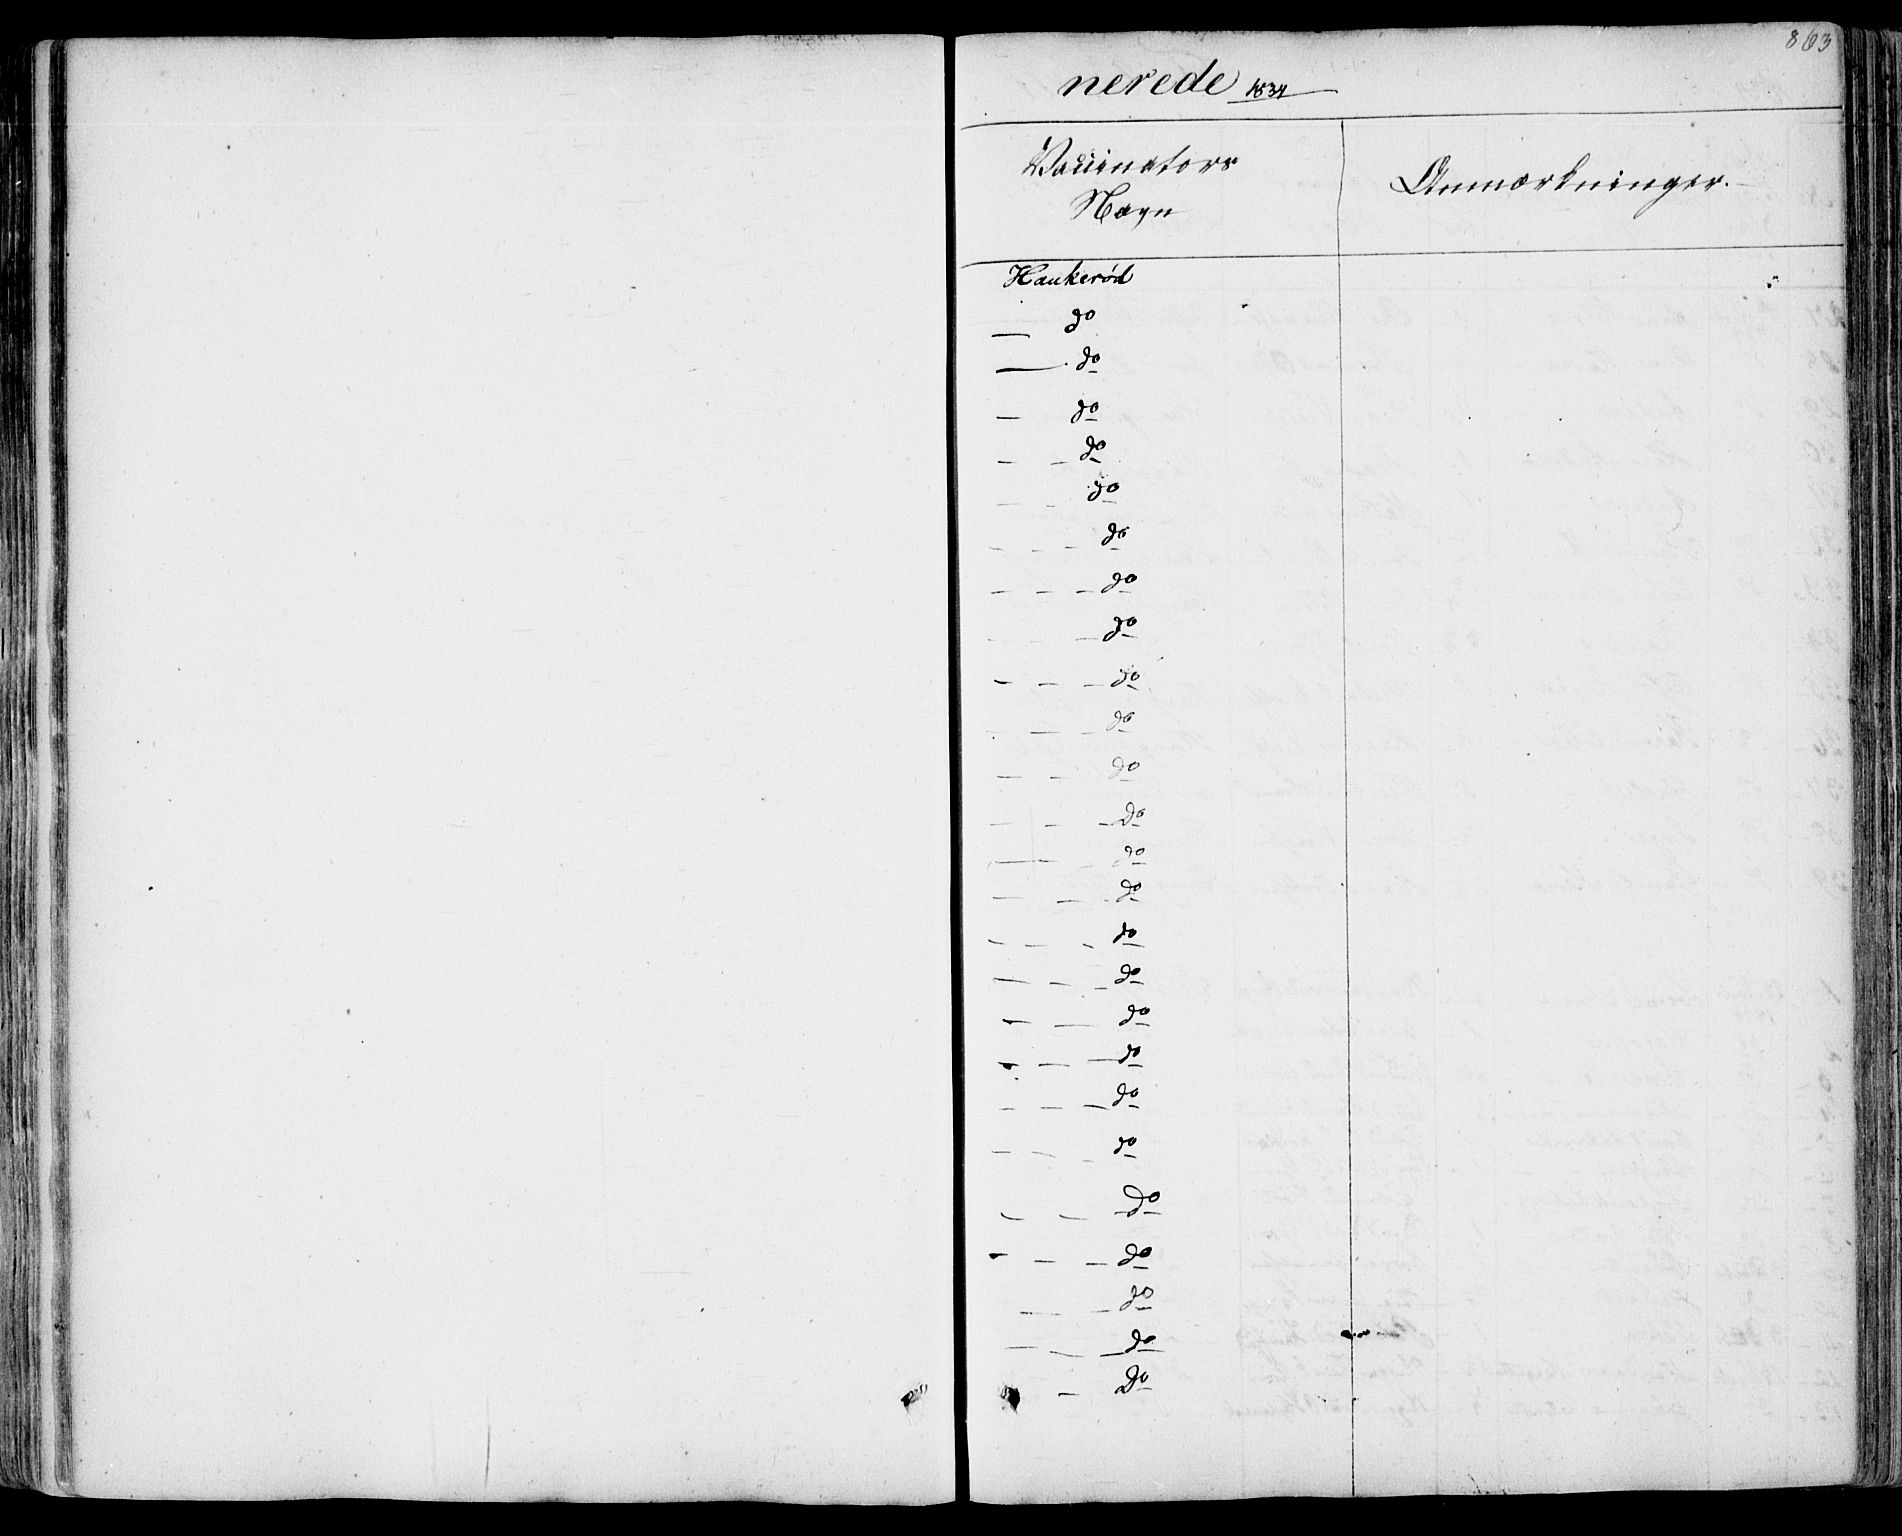 863
nerede 1834
Vaccinators
Navn
Anmærkninger.
Haukerød
— do
— do
— do
— — do
— — do
— — — do
— — — do
— — — do
— — — do
— — — do
— — do
— — — Do
— — do
— — do
— — — do
— — — do
— — do
— — — do
— — — do
— — — do
— — — Do
— — — do
— — do
— — — do
— Do